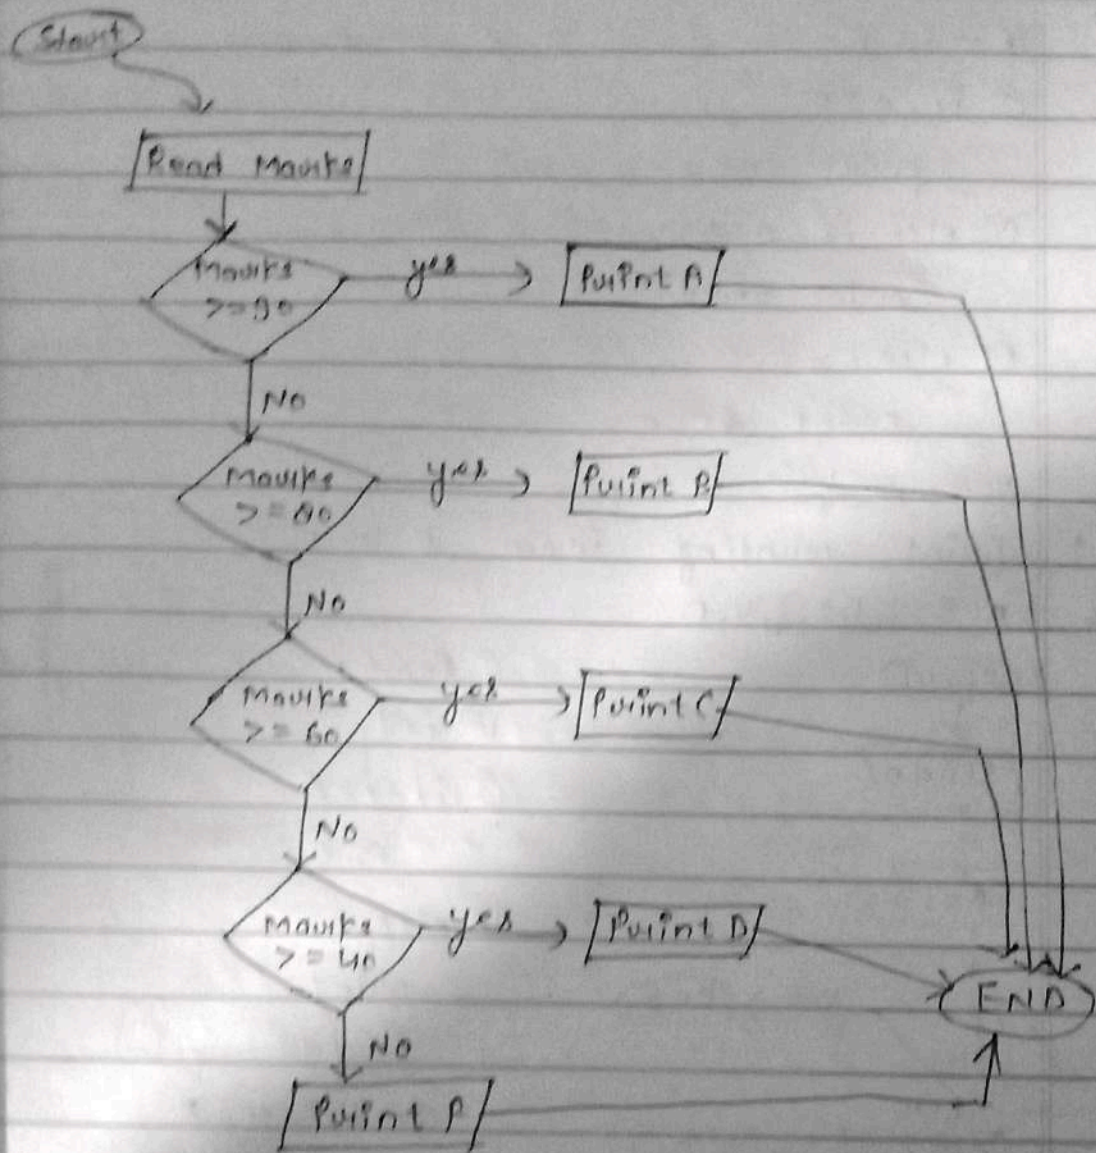 Start
Read Marks
Marks
>=90
yes
Print A
No
Marks
>=80
yes
Print B
No
Marks
>= 60
yes
Print C
No
Marks
>= 40
yes
Print D
END
No
Print F